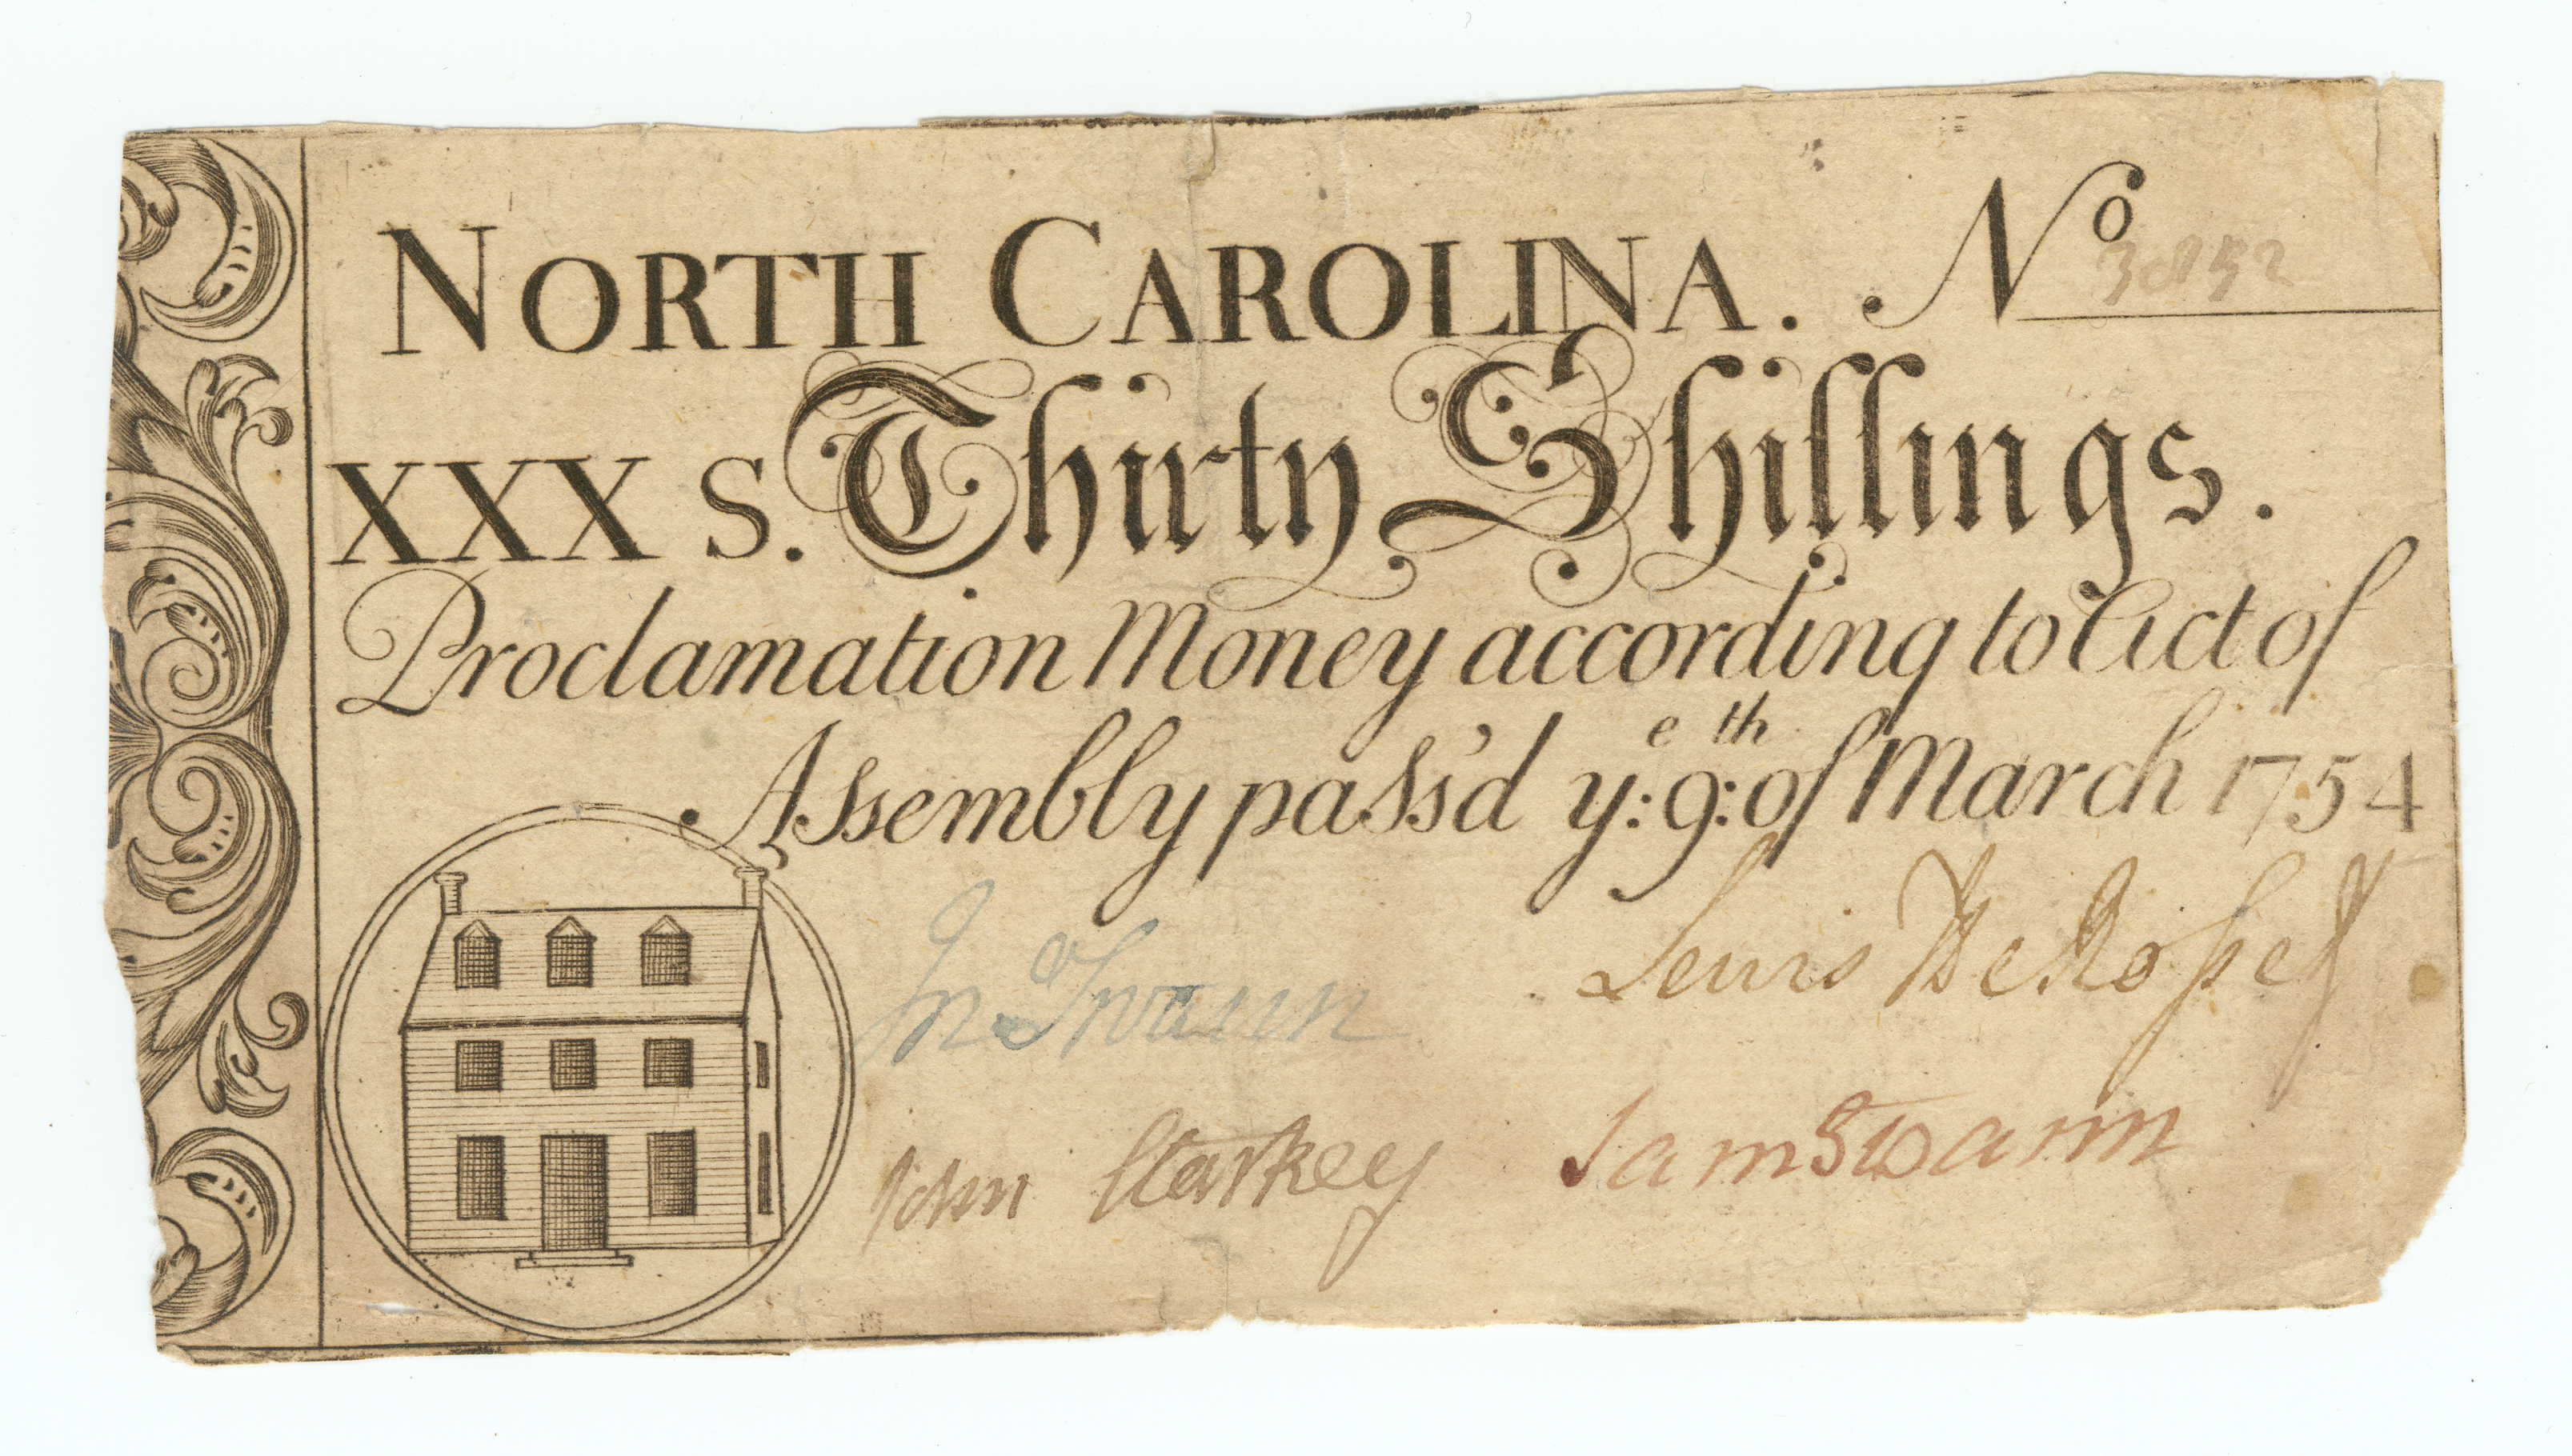 NORTH CAROLINA. No 3852
XXX S. Thirty Shillings.
Proclamation Money according to Act of
Assembly pass'd ye: 9th: of March 1754
Jno Swann Lewis DeRosset
John Starkey Sam Swann